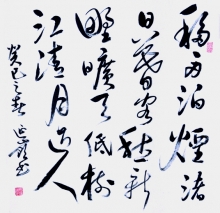 移舟泊煙渚
日暮客愁新
野曠天低樹
江清月近人
癸巳之春